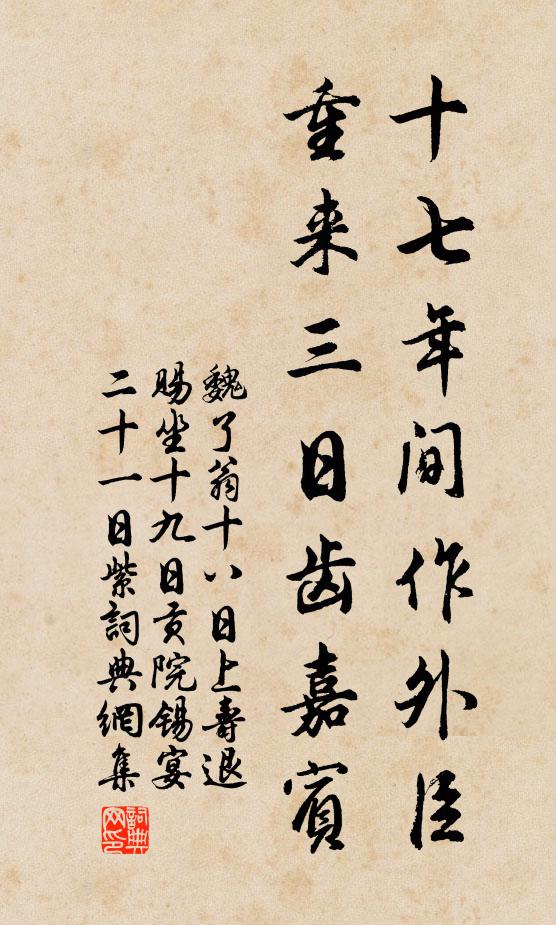 十七年间作外臣
重来三日齿嘉宾
魏了翁十八日上壽退
賜坐十九日贡院锡宴
二十一日紫詞典網集
詞典网印